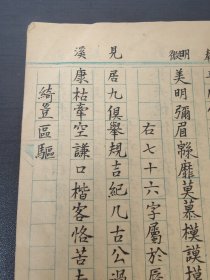 明微
見
溪
美明彌眉緜靡莫慕模謨
右七十六字屬於
居九俱舉規吉紀几古公過
康枯牽空謙口楷客恪苦
綺豈區驅